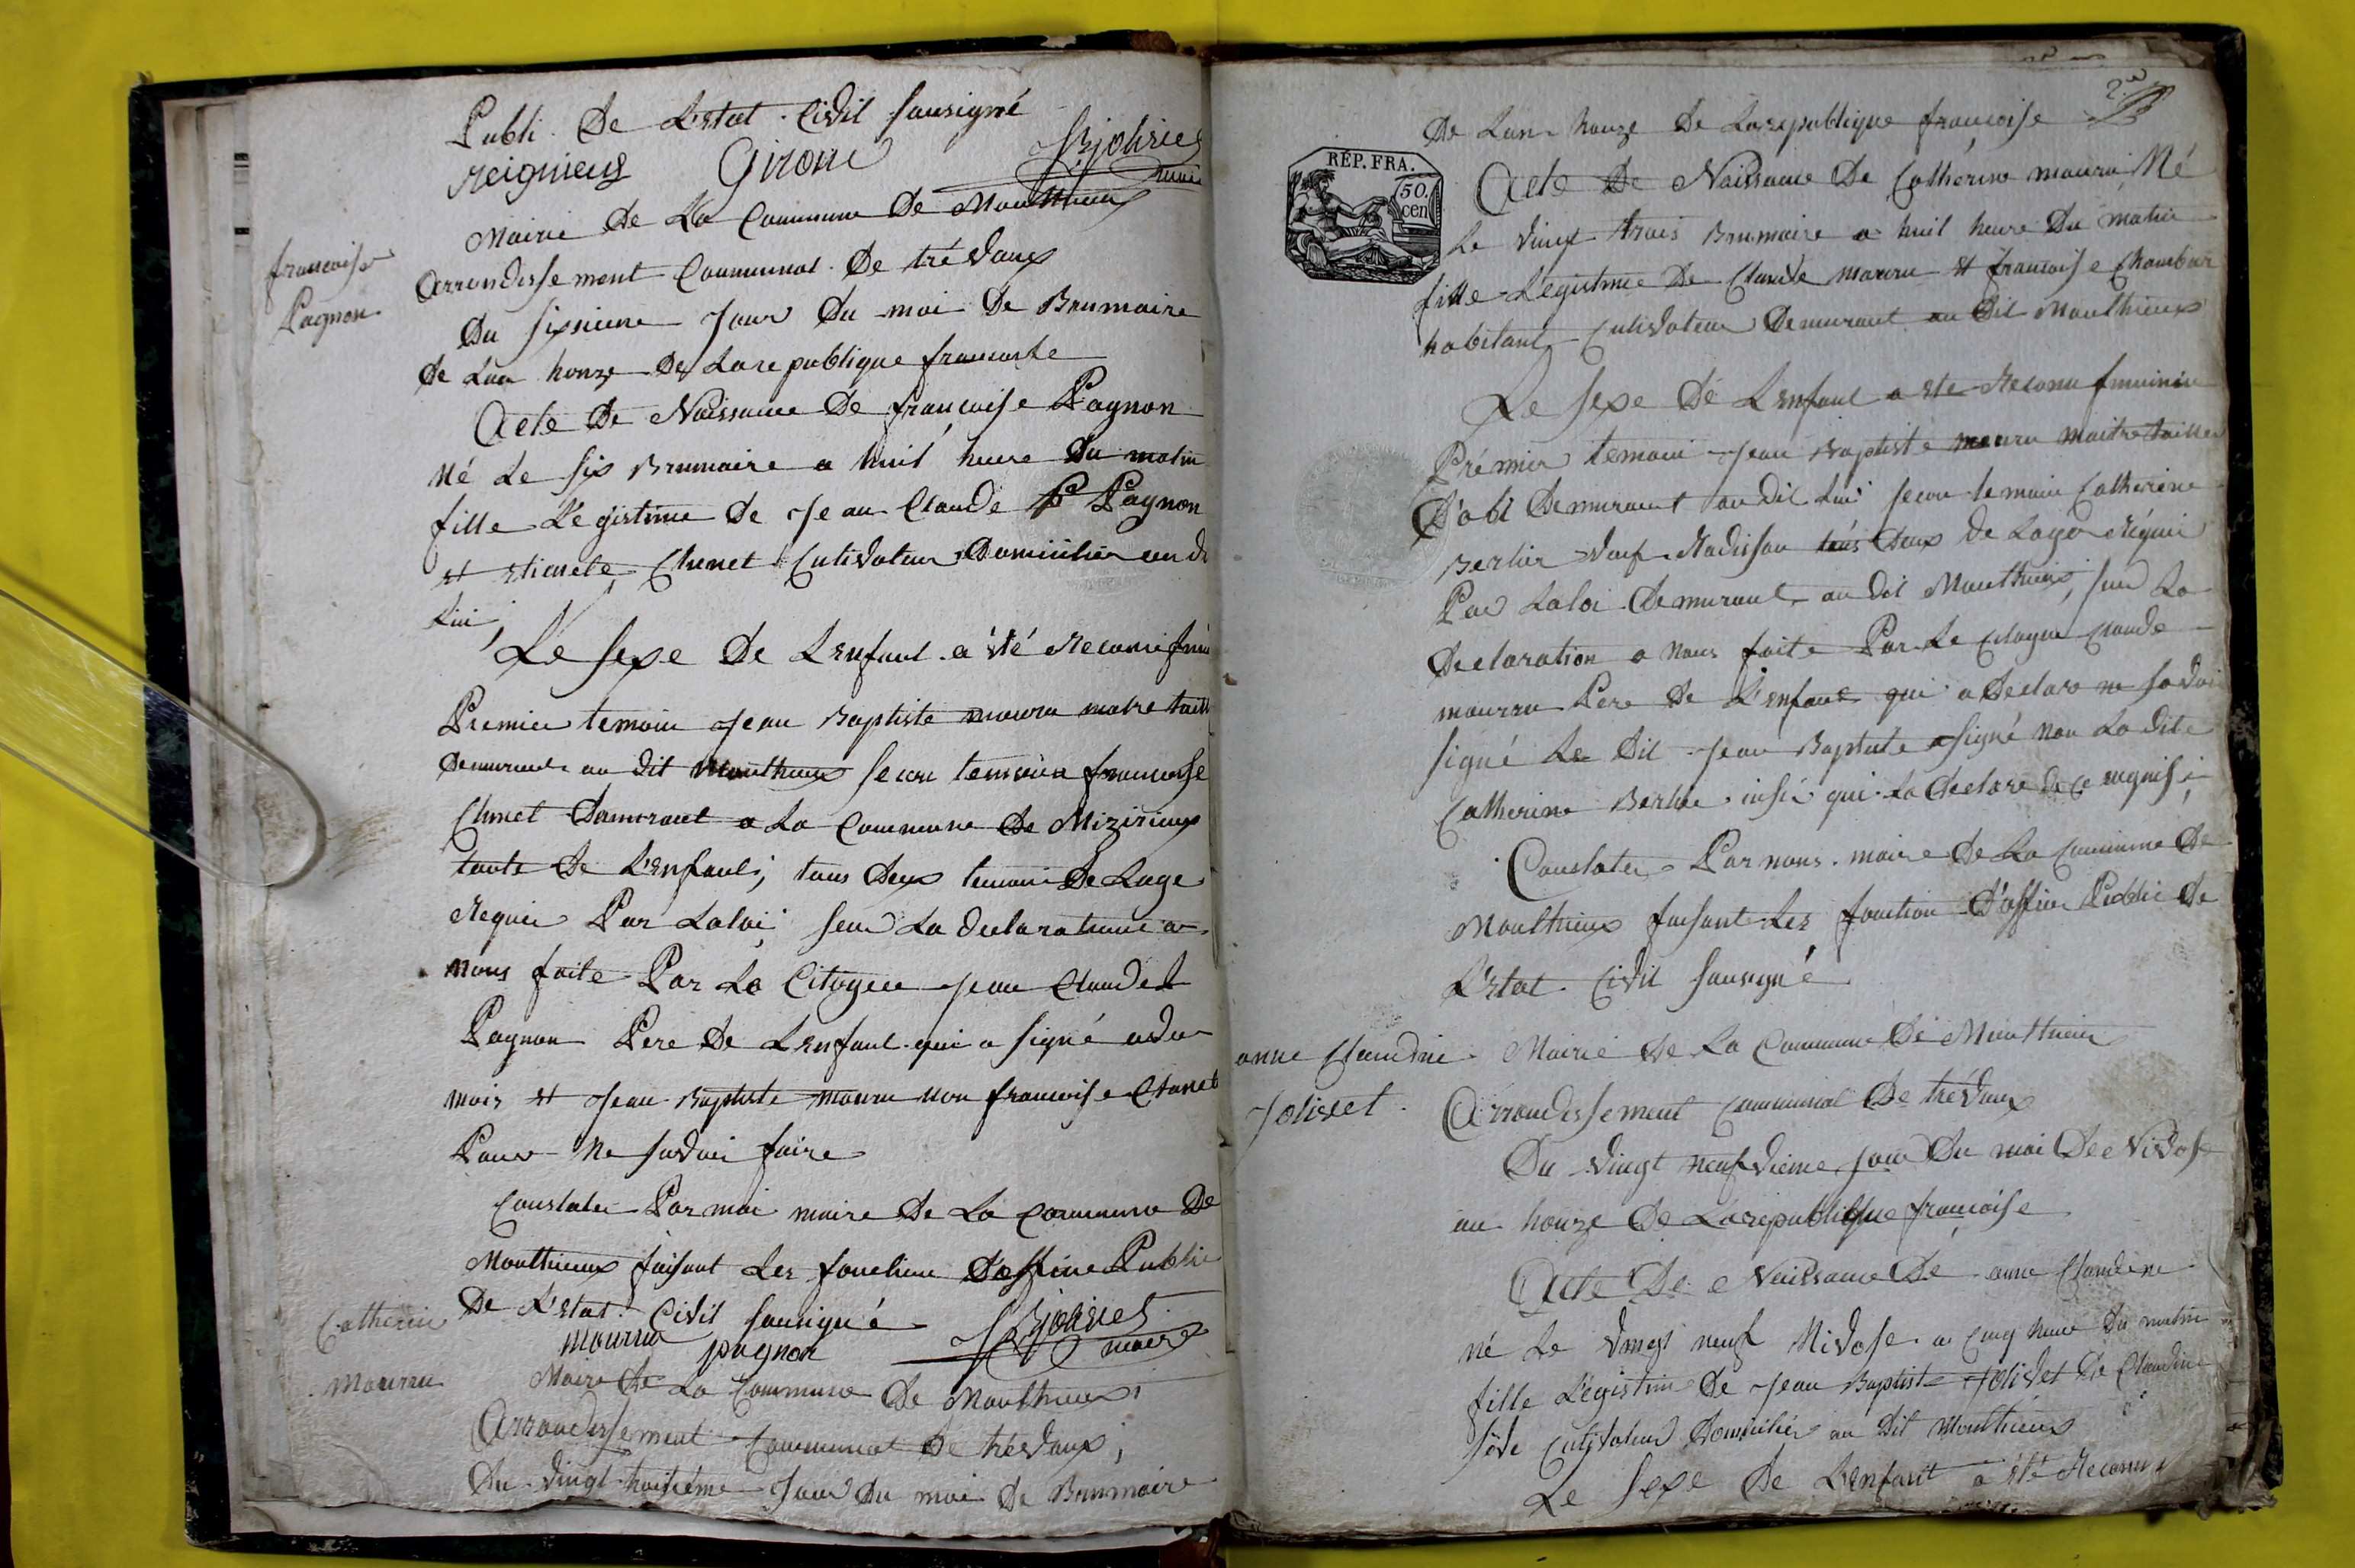 Publi. De L'Estat Civil sousigné
reignieus Girone JBjolivet
maire
Mairie de La Commune De Monthieux
francoise
Pagnon
Arrondissement Communal De trévoux
Du sixsieme Jour Du moi De Brumaire
De Lan honze De La republique francoise
Acte De Naissance De francoise Pagnon
Né Le six Brumaire a huit heure Du matin
fille Légistime De Jean Claude Pagnon
et Chenet Cutivateur Domicilier au di
Lui
Le sexe De L'enfant a été reconu
Premier temoin Jean Baptiste mourru maitre
Demurant au dit Monthieux secon temoin francoise
Chenet Damurant a La Commune De Mizirieux
tante De L'enfant, tous deux temoin De Lage
Requir Par Laloi sur La declaration a
nous faite Par Le Citoyen Jean Claude
Pagnon Pere De Lenfant qui a signé avec
mois et Jean Baptiste mourru non francoise Chenet
Pour ne savoir faire
Constater Par moi maire De La Commune De
Monthieux faisant Les fonction D'offine Public
De L'Estat Civil sousigné
mourru pagnon JBjolivet
maire
Catherine
Mourru
Mairie De La Commune De Monthieux
Arrondissement Communal De trévoux,
Du vingt troisieme Jour Du moi De Brumaire
2e
De Lan honze De La republique francoise
RÉP. FRA.
50.
cen
Acte De Naissance De Catherine mourru Né
Le vingt trois Brumaire a huit heure Du matin
fille Légistime De Claude mourru et francoise Chambar
habitant Cutivateur Demurant au Dit Monthieux
Le sexe De L'enfant a été Reconu feminin
Prémier temoin Jean Baptiste mourru maitre tailleur
D'abi Demurant au dit Lui secon temoin Catherine
Berlie deux De Lage Réquir
Par Laloi Demurant au dit Monthieux, sur La
Declaration a nous faite Par Le Citoyen Claude
mourru Pere De L'enfant qui a Declare ne savoir
signé Le Dit Jean Baptiste a signé non La dite
Catherine Berlie qui La declare de ce
Constater Par nous maire De La Commune De
Monthieux faisant Les fonction D'offine Public De
L'Estat Civil sousigné
anne Claudine
Jolivet
Mairie De La Commune De Monthieux
Arrondissement Communal De trévoux
Du vingt neufvieme jour Du moi De Nivose
an honze De La republique francoise
Acte De Naissance De anne Claudine
né Le vingt neuf Nivose a cinq heure Du matin
fille Légistime De Jean Baptiste Jolivet De Claudine
Cutivateur Domicilier au Dit Monthieux
Le sexe De L'enfant a été Reconu